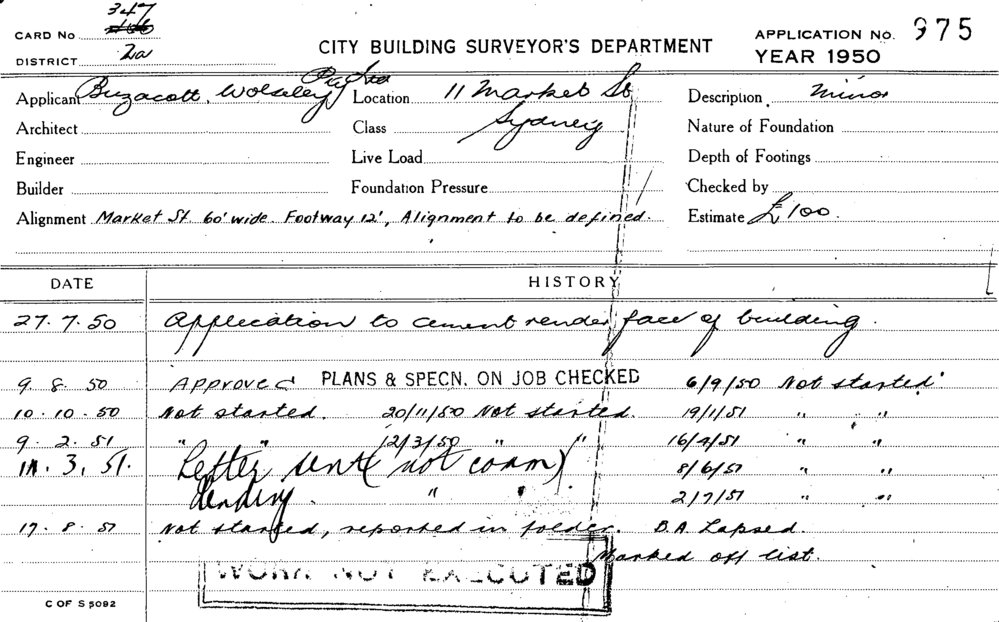 CARD No 347
CITY BUILDING SURVEYOR'S DEPARTMENT
APPLICATION No. 975
DISTRICT 2a
YEAR 1950
Applicant Buzacott, Wolseley Pty Ltd Location 11 Market St Description minor
Architect Class Sydney Nature of Foundation
Engineer Live Load Depth of Footings
Builder Foundation Pressure Checked by
Alignment Market St 60' wide. Footway 12', Alignment to be defined. Estimate £100.
DATE HISTORY
27.7.50 Application to cement render face of building.
9. 8. 50 Approved PLANS & SPECN. ON JOB CHECKED 6/9/50 Not started.
10.10.50 Not started. 20/11/50 Not started. 19/1/51 " "
9. 2. 51 " " 12/3/50 " " 16/4/51 " "
3. 51. Letter sent (not comm) 8/6/51 " "
" " 2/7/51 " "
17. 8. 51 Not started, reported in folder. B.A. Lapsed.
Marked off list.
WORK NOT EXECUTED
C OF S 5092